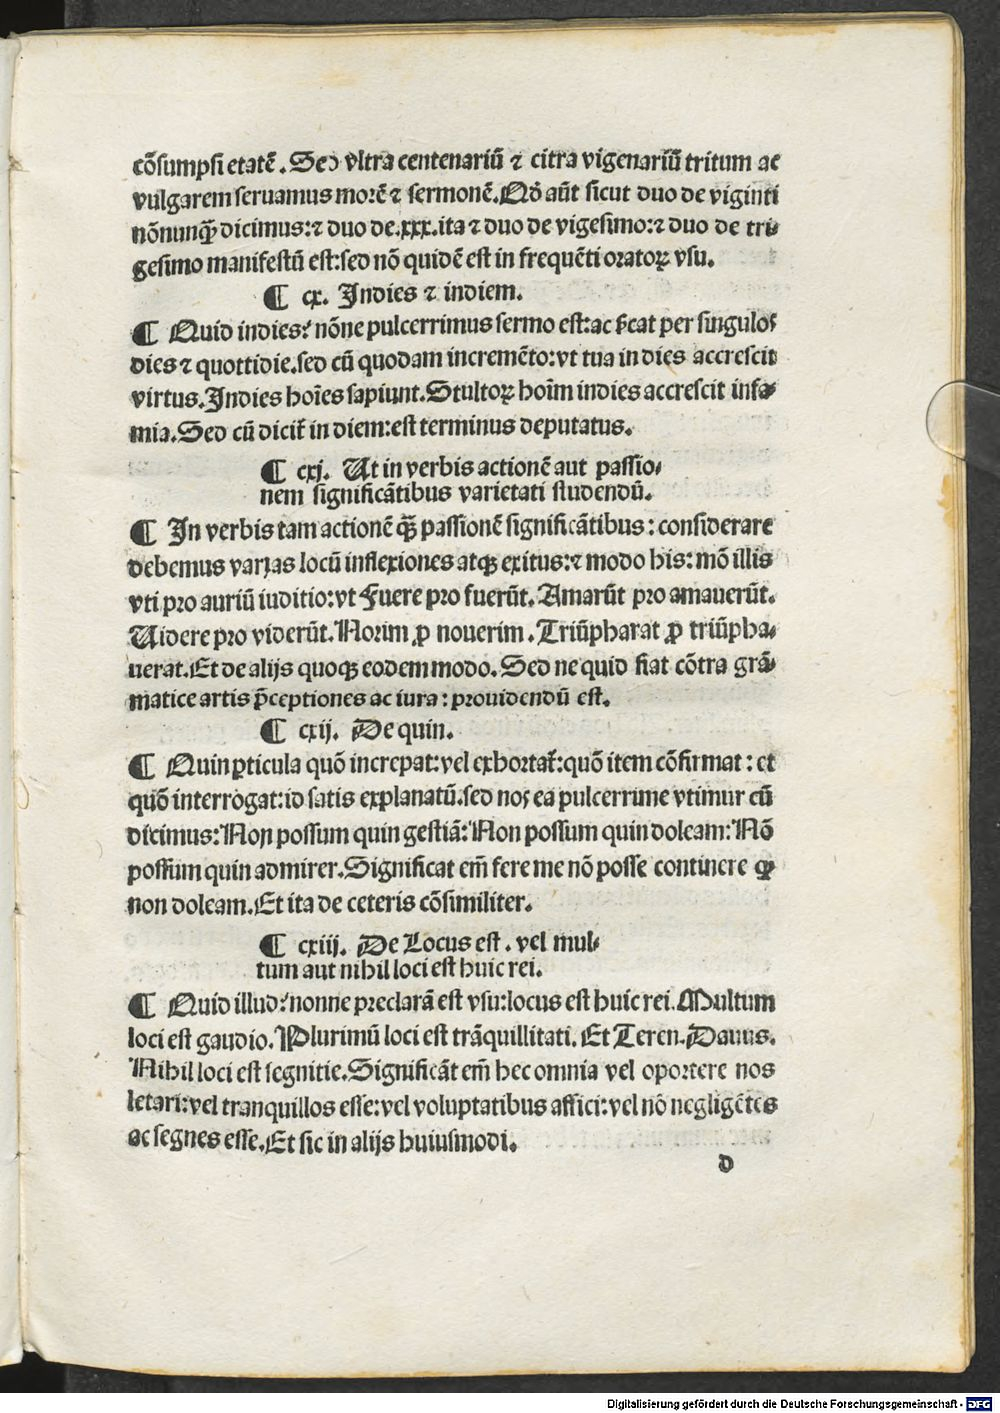 cōsumpsi etatē. Sed vltra centenariū ⁊ citra vigenariū tritum ac
vulgarem seruamus morē ⁊ sermonē. Nō aūt sicut duo de viginti
nōnunq̄ dicimus: ⁊ duo de .xxx. ita ⁊ duo de vigesimo: ⁊ duo de tri⸗
gesimo manifestū est: sed nō quidē est in frequēti oratoꝝ vsu.
¶ cx. Indies ⁊ indiem.
¶ Quid indies? nōne pulcerrimus sermo est: ac p̄cat per singulos
dies ⁊ quottidie. sed cū quodam incremēto: vt tua in dies accrescit
virtus. Indies hoīes sapiunt. Stultoꝝ hoīm indies accrescit infa⸗
mia. Sed cū dicit̄ in diem: est terminus deputatus.
¶ cxj. Ut in verbis actionē aut passio⸗
nem significātibus varietati studendū.
¶ In verbis tam actionē q̄ passionē significātibus: considerare
debemus varias locū inflexiones atqꝫ exitus: ⁊ modo his: mō illis
vti pro auriū iuditio: vt Fuere pro fuerūt. Amarūt pro amauerūt.
Uidere pro viderūt. Norim ꝓ nouerim. Triūpharat ꝓ triūpha⸗
uerat. Et de alijs quoqꝫ eodem modo. Sed ne quid fiat cōtra grā⸗
matice artis p̄ceptiones ac iura: prouidendū est.
¶ cxij. De quin.
¶ Quin ꝑticula quō increpat: vel exhortat̄: quō item cōfirmat: et
quō interrogat: id satis explanatū. sed nos ea pulcerrime vtimur cū
dicimus: Non possum quin gestiā: Non possum quin doleam: Nō
possum quin admirer. Significat em̄ fere me nō posse continere ꝙ
non doleam. Et ita de ceteris cōsimiliter.
¶ cxiij. De Locus est. vel mul⸗
tum aut nihil loci est huic rei.
¶ Quid illud? nonne preclarā est vsu: locus est huic rei. Multum
loci est gaudio. Plurimū loci est trāquillitati. Et Teren. Dauus.
Nihil loci est segnitie. Significāt em̄ hec omnia vel oportere nos
letari: vel tranquillos esse: vel voluptatibus affici: vel nō negligētes
ac segnes esse. Et sic in alijs huiusmodi.
d
Digitalisierung gefördert durch die Deutsche Forschungsgemeinschaft - DFG